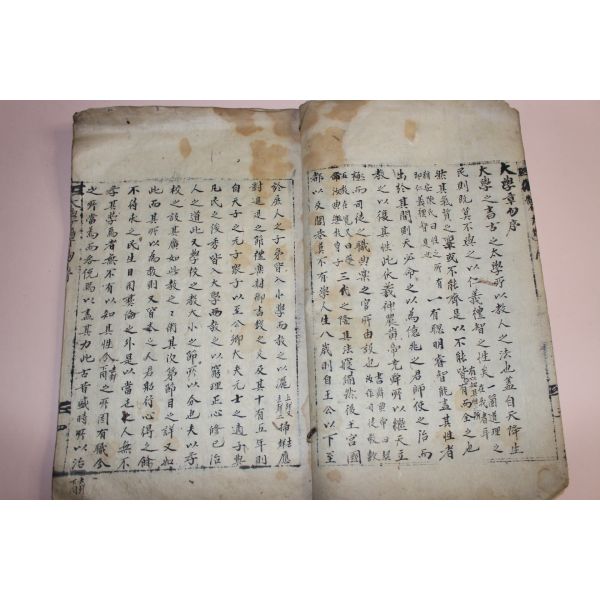 大學章句序
大學之書古之大學所以敎人之法也盖自天降生
民則旣莫不與之以仁義禮智之性矣
然其氣質之稟或不能齊是以不能皆有而全之也
一有聰明睿智能盡其性者
出於其間則天必命之以為億兆之君師使之治而
敎之以復其性此伏羲神農黃帝堯舜所以繼天立
極而司徒之職典樂之官所由設也
三代之隆其法寖備然後王宮國
都以及閭巷莫不有學人生八歲則自王公以下至
於庶人之子弟皆入小學而敎之以灑掃應
對進退之節禮樂射御書數之文及其十有五年則
自天子之元子衆子以至公卿大夫元士之適子與
凡民之俊秀皆入大學而敎之以窮理正心修己治
人之道此又學校之敎大小之節所以分也夫以學
校之設其廣如此敎之之術其次第節目之詳又如
此而其所以為敎則又皆本之人君躬行心得之餘
不待求之民生日用彝倫之外是以當世之人無不
學其學焉者無不有以知其性分之所固有職分
之所當為而各俛焉以盡其力此古昔盛時所以治